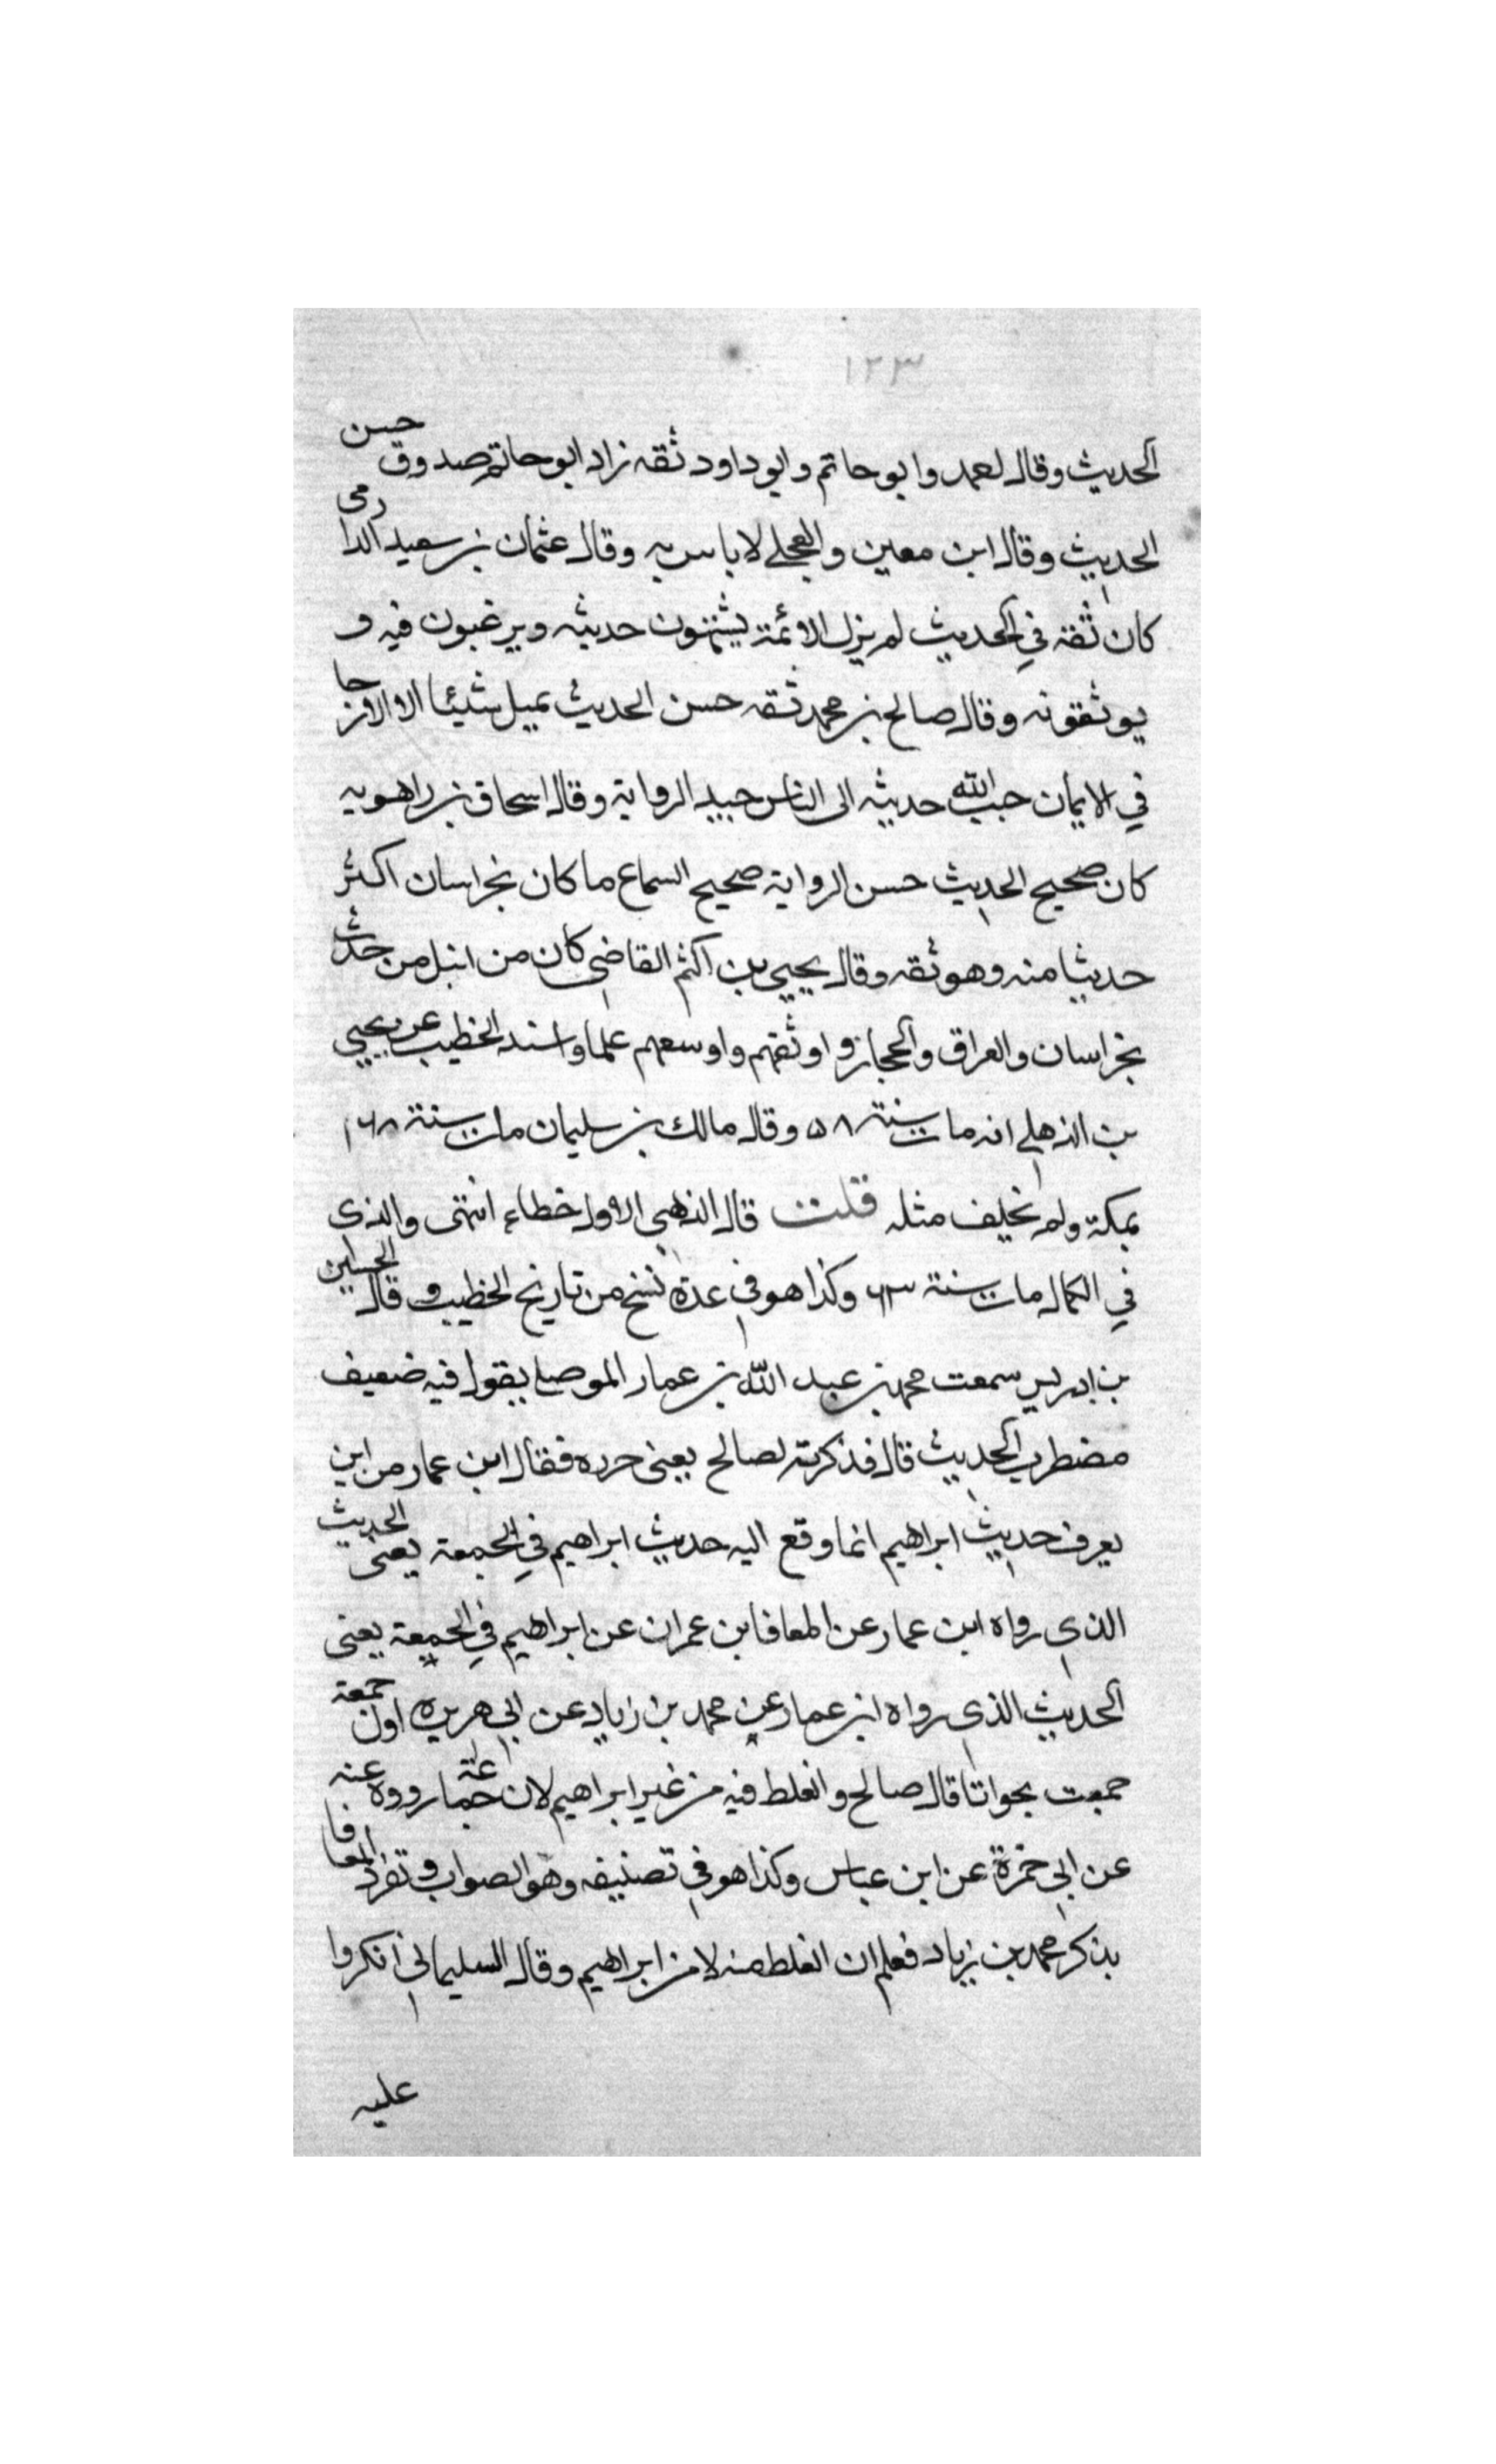 ١٢٣
الحديث وقال احمد وابو حاتم وابو داود ثقه زاد ابو حاتم صدوق حسن
الحديث وقال ابن معين والعجلي لا باس به وقال عثمان بن سعيد الدارمى
كان ثقة في الحديث لم يزل الائمة يشتهون حديثه ويرغبون فيه و
يوثقونه وقال صالح بن محمد ثقه حسن الحديث يميل شيئا الى الارجا
في الايمان حبب الله حديثه الى الناس جيد الرواية وقال اسحاق بن راهويه
كان صحيح الحديث حسن الرواية صحيح السماع ما كان بخراسان اكثر
حديثا منه وهو ثقه وقال يحيي بن اكثم القاضي كان من انبل من حدث
بخراسان والعراق والحجاز واوثقهم واوسعهم علما واسند الخطيب عن يحيي
بن الذهلي انه مات سنة ٥٨ وقال مالك بن سليمان مات سنة ١٦٨
بمكة ولم يخلف مثله قلت قال الذهبي الاول خطاء انتهى والذى
في الكمال مات سنة ٦٣ وكذا هو في عدة نسخ من تاريخ الخطيب وقال الحسين
بن ادريس سمعت محمد بن عبد الله بن عمار الموصلي يقول فيه ضعيف
مضطرب الحديث قال فذكرته لصالح يعنى جزره فقال ابن عمار من اين
يعرف حديث ابراهيم انما وقع اليه حديث ابراهيم في الجمعة يعنى الحديث
الذي رواه ابن عمار عن المعافا بن عمران عن ابراهيم في الجمعة يعنى
الحديث الذي رواه ابن عمار عن محمد بن زياد عن ابي هريره اول جمعة
جمعت بجواثا قال صالح والغلط فيه من غير ابراهيم لان جماعة رووه عنه
عن ابي جمرة عن ابن عباس وكذا هو في تصنيفه وهو الصواب وتفرد المعافا
بذكر محمد بن زياد فعلم ان الغلط منه لا من ابراهيم وقال السليماني انكروا
عليه